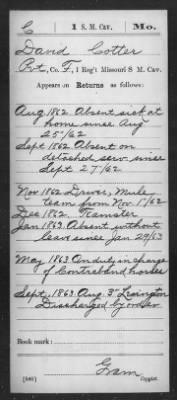 C 1 S. M. Cav. Mo.
David Cotter
Pvt, Co. F, 1 Reg't Missouri S M. Cav.
Appears on Returns as follows:
Aug. 1862. Absent sick at
home since Aug
25"/62
Sept 1862 Absent on
detached serv. since
Sept 27/62
Nov 1862 Driver, Mule
team from Nov. 1"/62
Dec 1862. Teamster
Jan 1863. Absent without
leave since Jan 29/63
May 1863 On duty in charge
of Contraband horses
Sept. 1863. Aug. 3" Lexington
Discharged by order
Book mark:
Gram
Copyist.